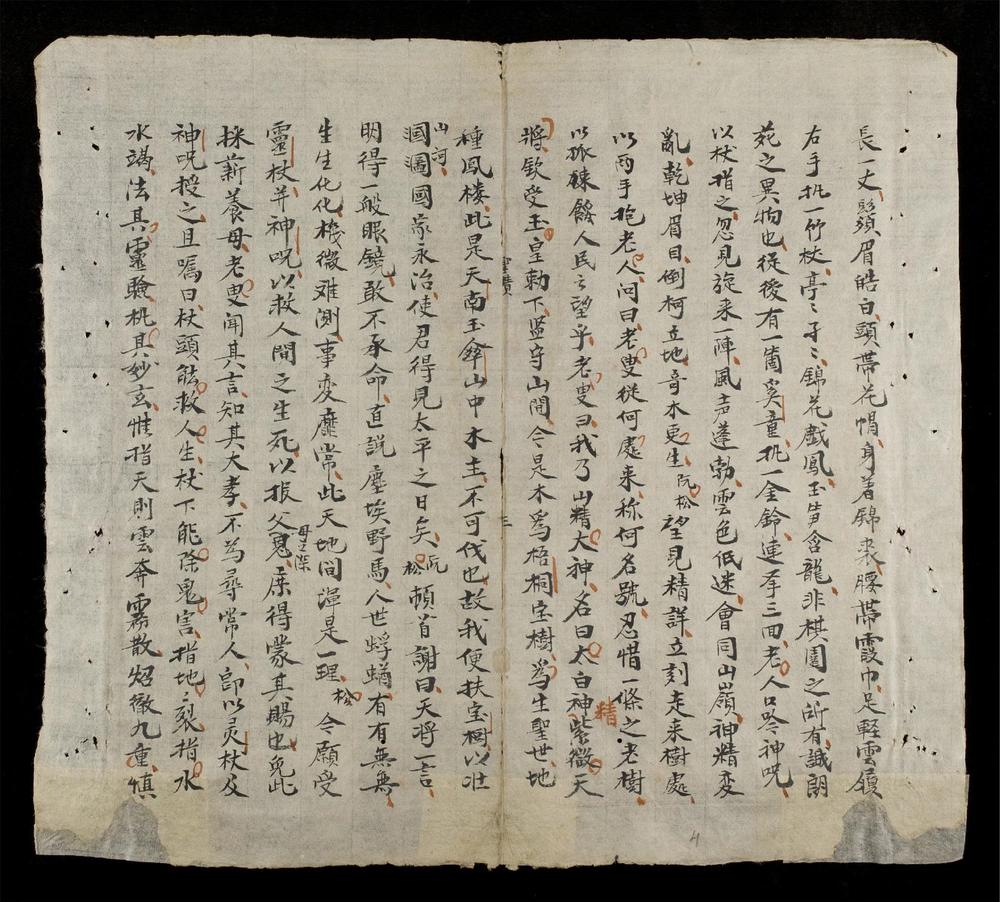 長一丈鬚眉皓白頭帶花帽身着錦裘腰帶霞巾足軽雲履
右手扒一竹杖亭〻孑〻錦花戲鳳玉笋含龍非棋園之所有誠閬
苑之異物也從後有一箇奚童扒一金鈴連挙三回老人口吟神呪
以杖指之忽見旋来一陣風声蓬勃雲色低迷會同山嶺神精变
亂乾坤眉目倒柯立地竒木更生阮松望見精詳立刻走来樹處
以兩手抱老人问曰老叟從何處来称何名號忍惜一條之老樹
以孤 餓人民之望乎老叟曰我乃山精大神名曰太白神精紫微天
將欽受玉皇勅下监守山間令是木爲梧桐宝樹爲生聖世地
種鳳楼此是天南玉傘山中木主不可伐也故我便扶宝桐以壮
山河
國家永治使君得見太平之日矣阮松頓首謝曰天将一言
明得一般眼鏡敢不承命直説塵埃野馬人世蜉蝣有有無無
生生化化機微难測事変靡常此天地间渾是一理松今願受
靈杖并神呪以救人間之生死以扳父冤母深庶得蒙其賜也免此
採薪養母老叟闻其言知其大孝不為尋常人即以灵杖及
神呪授之且嘱曰杖頭能救人生杖下能除鬼害指地〻裂指水
水竭法其靈驗机其妙玄惟指天則雲奔霧散炤徹九重慎